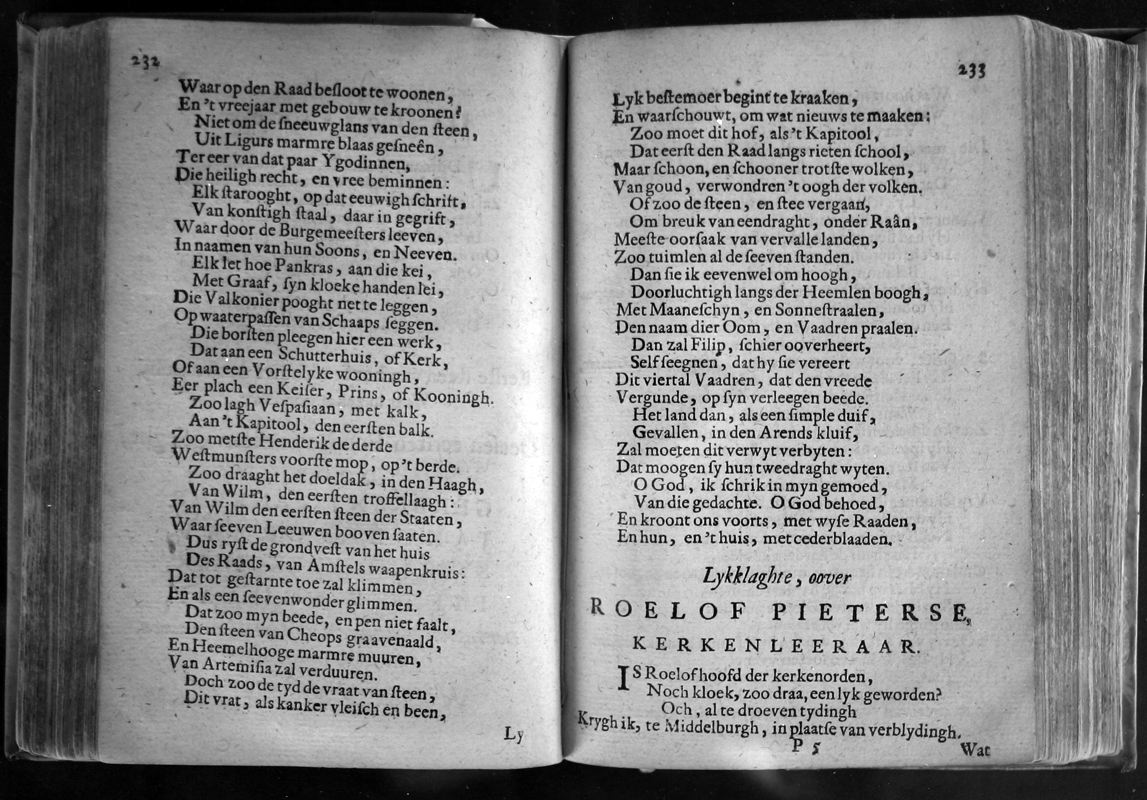 232
Waar op den Raad beſloot te woonen,
En 't vreejaar met gebouw te kroonen?
Niet om de ſneeuwglans van den ſteen,
Uit Ligurs marmre blaas geſneên,
Ter eer van dat paar Ygodinnen,
Die heiligh recht, en vree beminnen:
Elk ſtarooght, op dat eeuwigh ſchrift,
Van konſtigh ſtaal, daar in gegrift,
Waar door de Burgemeeſters leeven,
In naamen van hun Soons, en Neeven.
Elk let hoe Pankras, aan die kei,
Met Graaf, ſyn kloeke handen lei,
Die Valkonier pooght net te leggen,
Op waaterpaſſen van Schaaps ſeggen.
Die borſten pleegen hier een werk,
Dat aan een Schutterhuis, of Kerk,
Of aan een Vorſtelyke wooningh,
Eer plach een Keiſer, Prins, of Kooningh.
Zoo lagh Veſpaſiaan, met kalk,
Aan 't Kapitool, den eerſten balk.
Zoo metſte Henderik de derde
Weſtmunſters voorſte mop, op 't berde.
Zoo draaght het doeldak, in den Haagh,
Van Wilm, den eerſten troffellaagh:
Van Wilm den eerſten ſteen der Staaten,
Waar ſeeven Leeuwen booven ſaaten.
Dus ryſt de grondveſt van het huis
Des Raads, van Amſtels waapenkruis:
Dat tot geſtarnte toe zal klimmen,
En als een ſeevenwonder glimmen.
Dat zoo myn beede, en pen niet faalt,
Den ſteen van Cheops graavenaald,
En Heemelhooge marmre muuren,
Van Artemiſia zal verduuren.
Doch zoo de tyd de vraat van ſteen,
Dit vrat, als kanker vleiſch en been,
Ly
233
Lyk beſtemoer begint te kraaken,
En waarſchouwt, om wat nieuws te maaken:
Zoo moet dit hof, als 't Kapitool,
Dat eerſt den Raad langs rieten ſchool,
Maar ſchoon, en ſchooner trotſte wolken,
Van goud, verwondren 't oogh der volken.
Of zoo de ſteen, en ſtee vergaan,
Om breuk van eendraght, onder Raân,
Meeſte oorſaak van vervalle landen,
Zoo tuimlen al de ſeeven ſtanden.
Dan ſie ik eevenwel om hoogh,
Doorluchtigh langs der Heemlen boogh,
Met Maaneſchyn, en Sonneſtraalen,
Den naam dier Oom, en Vaadren praalen.
Dan zal Filip, ſchier ooverheert,
Self ſeegnen, dat hy ſie vereert
Dit viertal Vaadren, dat den vreede
Vergunde, op ſyn verleegen beede.
Het land dan, als een ſimple duif,
Gevallen, in den Arends kluif,
Zal moeten dit verwyt verbyten:
Dat moogen ſy hun tweedraght wyten.
O God, ik ſchrik in myn gemoed,
Van die gedachte. O God behoed,
En kroont ons voorts, met wyſe Raaden,
En hun, en 't huis, met cederblaaden.
Lykklaghte, oover
ROELOF PIETERSE,
KERKENLEERAAR.
IS Roelof hoofd der kerkenorden,
Noch kloek, zoo draa, een lyk geworden?
Och, al te droeven tydingh
Krygh ik, te Middelburgh, in plaatſe van verblydingh.
P 5
Wat